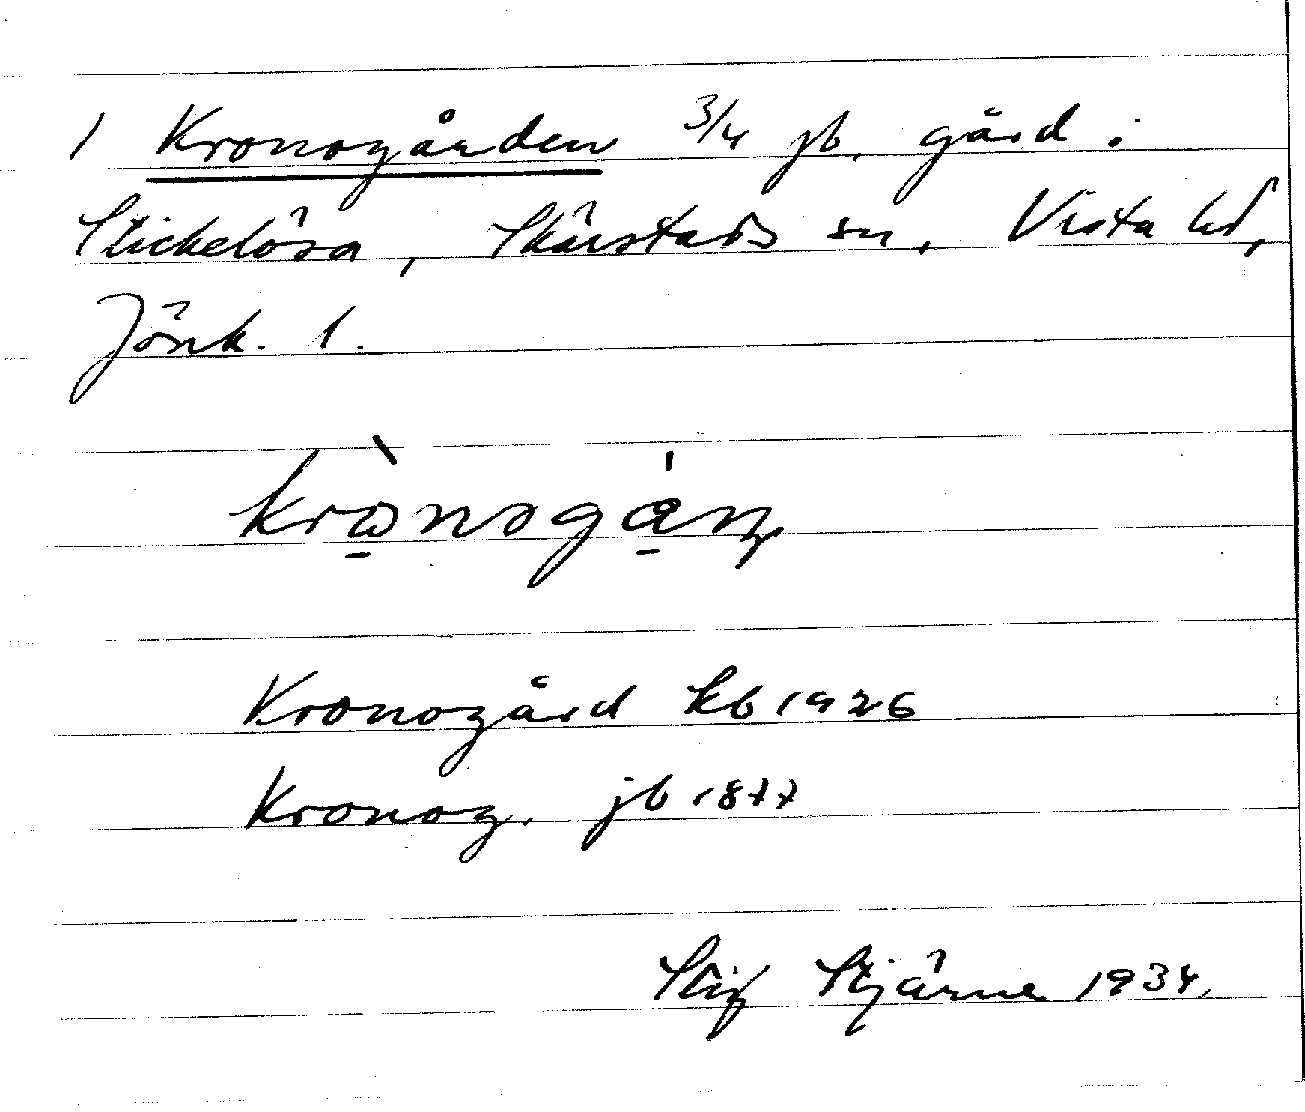 1 Kronogården 3/4 jb. gård i
Stickelösa, Skärstads sn, Vista hd,
Jönk. l.
krònogán
Kronogård kb 1926
Kronog. jb 1877
Stig Stjärne 1934.